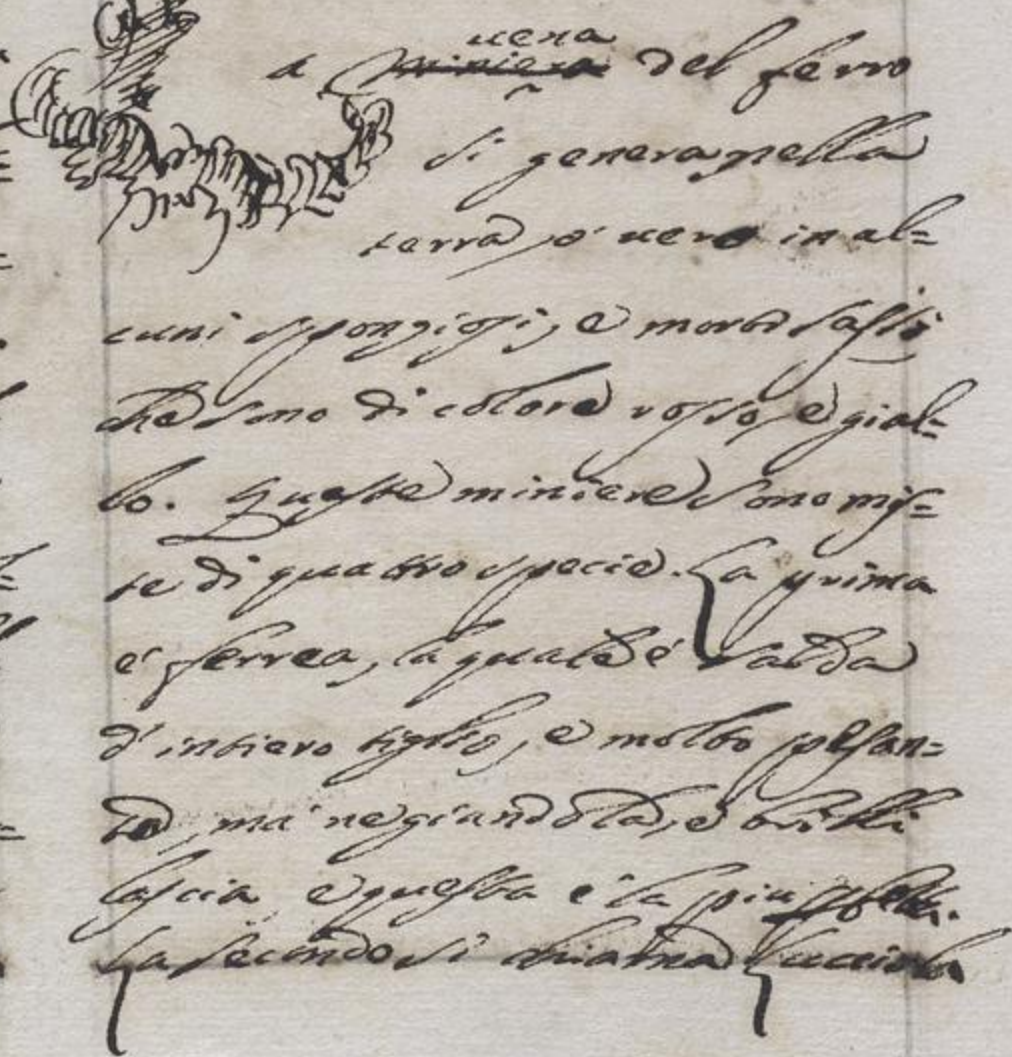 La uena
miniera del ferro
si genera nella
terra, ó uero in al=
cuni spongiosi, e morbi sassi
che sono di colore rosso, e gial=
lo. Queste miniere sono mis=
te di quattro specie. La prima
é ferrea, la quale é salda
d'intiero tiglio, e molto pesan=
te, má negiandola, e brilli
lascia e questa é la piu
La secondo si chiama Lucciola